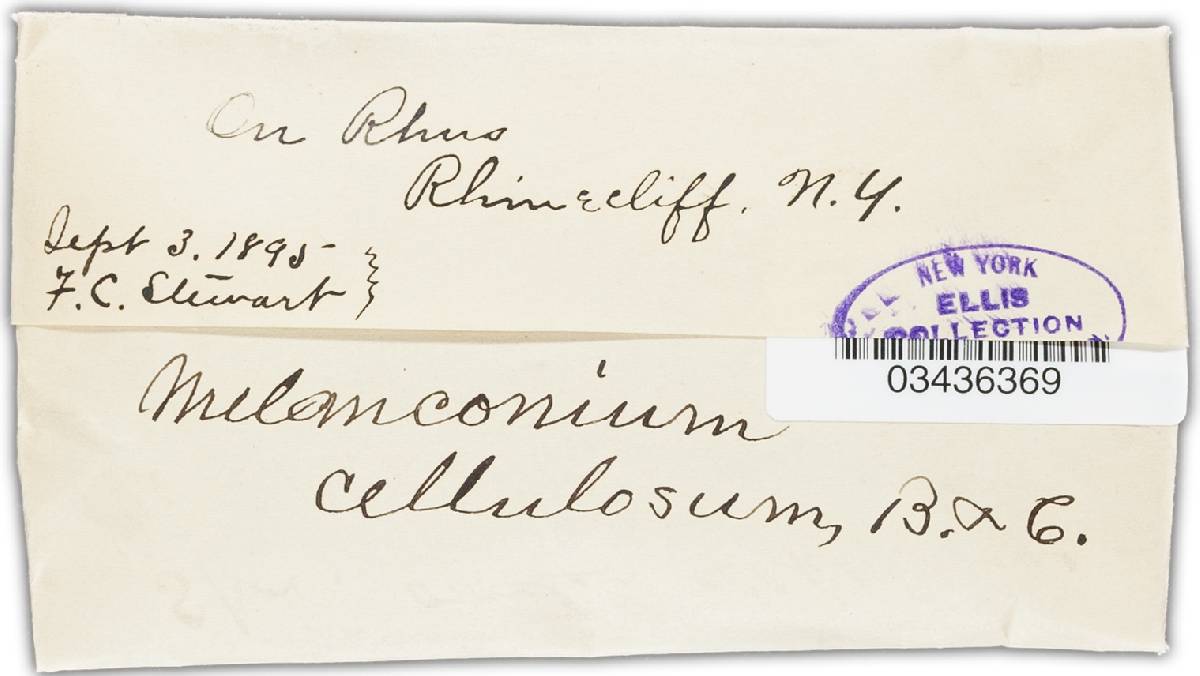 On Rhus
Rhinecliff, N.Y.
Sept 3. 1895
F. C. Stewart
NEW YORK
ELLIS
COLLECTION
03436369
Melanconium
cellulosum, B. & C.